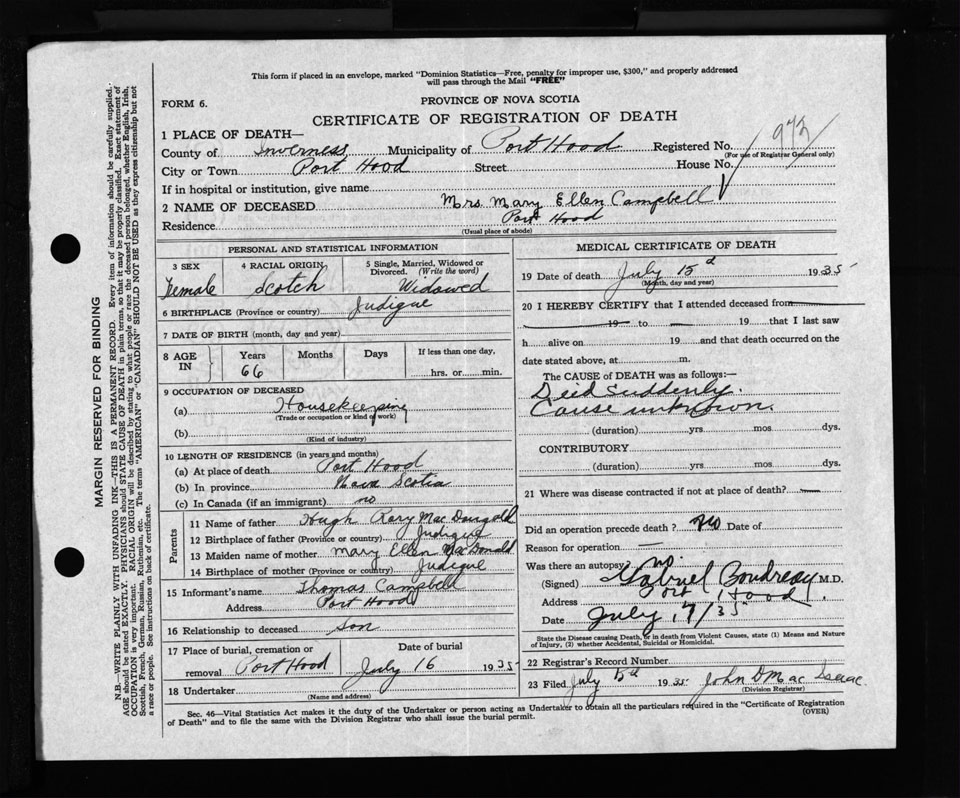 This form if placed in an envelope, marked "Dominion Statistics—Free, penalty for improper use, $300," and properly addressed
will pass through the Mail "FREE"
FORM 6.
PROVINCE OF NOVA SCOTIA
CERTIFICATE OF REGISTRATION OF DEATH
1 PLACE OF DEATH—
County of Inverness Municipality of Port Hood Registered No. 973
(For use of Registrar General only)
City or Town Port Hood Street House No.
If in hospital or institution, give name
2 NAME OF DECEASED Mrs. Mary Ellen Campbell
Residence Port Hood
(Usual place of abode)
PERSONAL AND STATISTICAL INFORMATION
3 SEX
Female
4 RACIAL ORIGIN
Scotch
5 Single, Married, Widowed or
Divorced. (Write the word)
Widowed
6 BIRTHPLACE (Province or country) Judique
7 DATE OF BIRTH (month, day and year)
8 AGE
IN
Years
66
Months
Days
If less than one day,
hrs. or min.
9 OCCUPATION OF DECEASED
(a) Housekeeping
(Trade or occupation or kind of work)
(b)
(Kind of industry)
10 LENGTH OF RESIDENCE (in years and months)
(a) At place of death Port Hood
(b) In province Nova Scotia
(c) In Canada (if an immigrant) no
Parents
11 Name of father Hugh Rory MacDougald
12 Birthplace of father (Province or country) Judique
13 Maiden name of mother Mary Ellen MacDonald
14 Birthplace of mother (Province or country) Judique
15 Informant's name Thomas Campbell
Address Port Hood
16 Relationship to deceased Son
17 Place of burial, cremation or
removal Port Hood
Date of burial
July 16 1935
18 Undertaker
(Name and address)
MEDICAL CERTIFICATE OF DEATH
19 Date of death July 15 d 1935
(Month, day and year)
20 I HEREBY CERTIFY that I attended deceased from
19 to 19 that I last saw
h alive on 19 and that death occurred on the
date stated above, at m.
The CAUSE of DEATH was as follows:—
Deid suddenly.
Cause unknown.
(duration) yrs mos dys.
CONTRIBUTORY
(duration) yrs mos dys.
21 Where was disease contracted if not at place of death?
Did an operation precede death? No Date of
Reason for operation —
Was there an autopsy no
(Signed) Gabriel Boudreau M.D.
Address Port Hood.
Date July 17/35
State the Disease causing Death, or in death from Violent Causes, state (1) Means and Nature
of Injury, (2) whether Accidental, Suicidal or Homicidal.
22 Registrar's Record Number
23 Filed July 15d 1935 John D MacIsaac
(Division Registrar)
Sec. 46—Vital Statistics Act makes it the duty of the Undertaker or person acting as Undertaker to obtain all the particulars required in the "Certificate of Registration
of Death" and to file the same with the Division Registrar who shall issue the burial permit.
(OVER)
MARGIN RESERVED FOR BINDING
N.B.—WRITE PLAINLY WITH UNFADING INK—THIS IS A PERMANENT RECORD. Every item of information should be carefully supplied.
AGE should be stated EXACTLY. PHYSICIANS should STATE CAUSE OF DEATH in plain terms, so that it may be properly classified. Exact statement of
OCCUPATION is very important. RACIAL ORIGIN will be described by stating to what people or race the deceased person belonged, whether English, Irish,
Scottish, French, German, Russian, Ruthenian, etc. The terms "AMERICAN" or "CANADIAN" SHOULD NOT BE USED as they express citizenship but not
a race or people. See instructions on back of certificate.